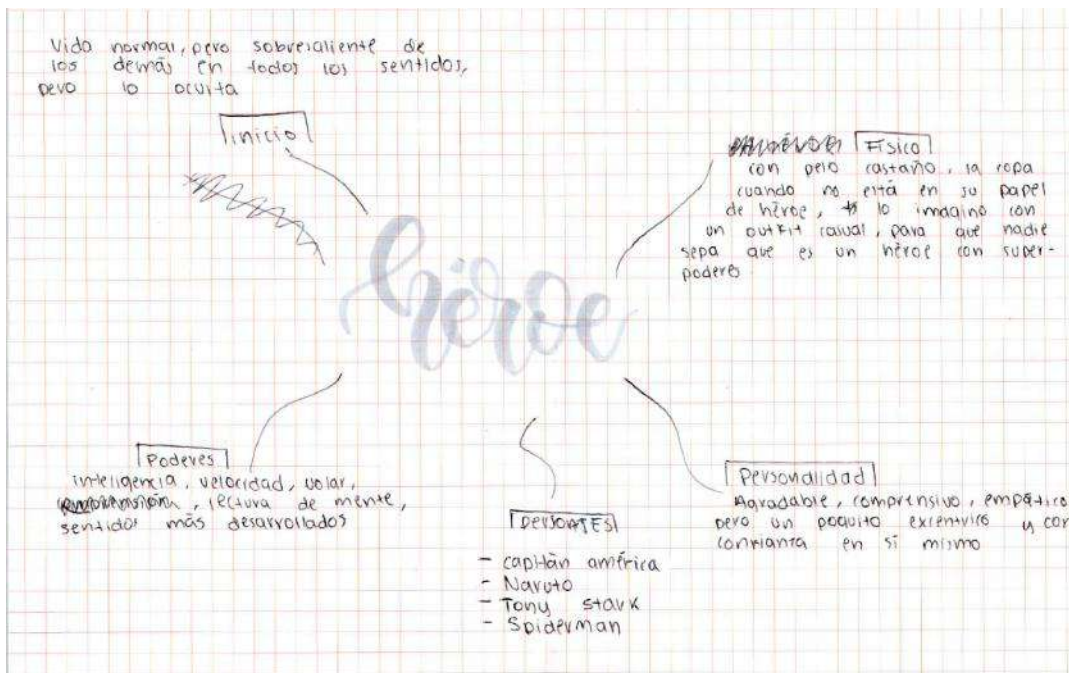 Vida normal, pero sobresaliente de
los demás en todos los sentidos,
pero lo oculta
inicio
Físico
con pelo castaño, la ropa
cuando no está en su papel
de héroe, lo imagino con
un outfit casual, para que nadie
sepa que es un héroe con super-
poderes
héroe
Poderes
inteligencia, velocidad, volar,
lectura de mente,
sentidos más desarrollados
personajes
- capitán américa
- Naruto
- Tony stark
- Spiderman
Personalidad
Agradable, comprensivo, empático
pero un poquito excentrico y con
confianza en sí mismo